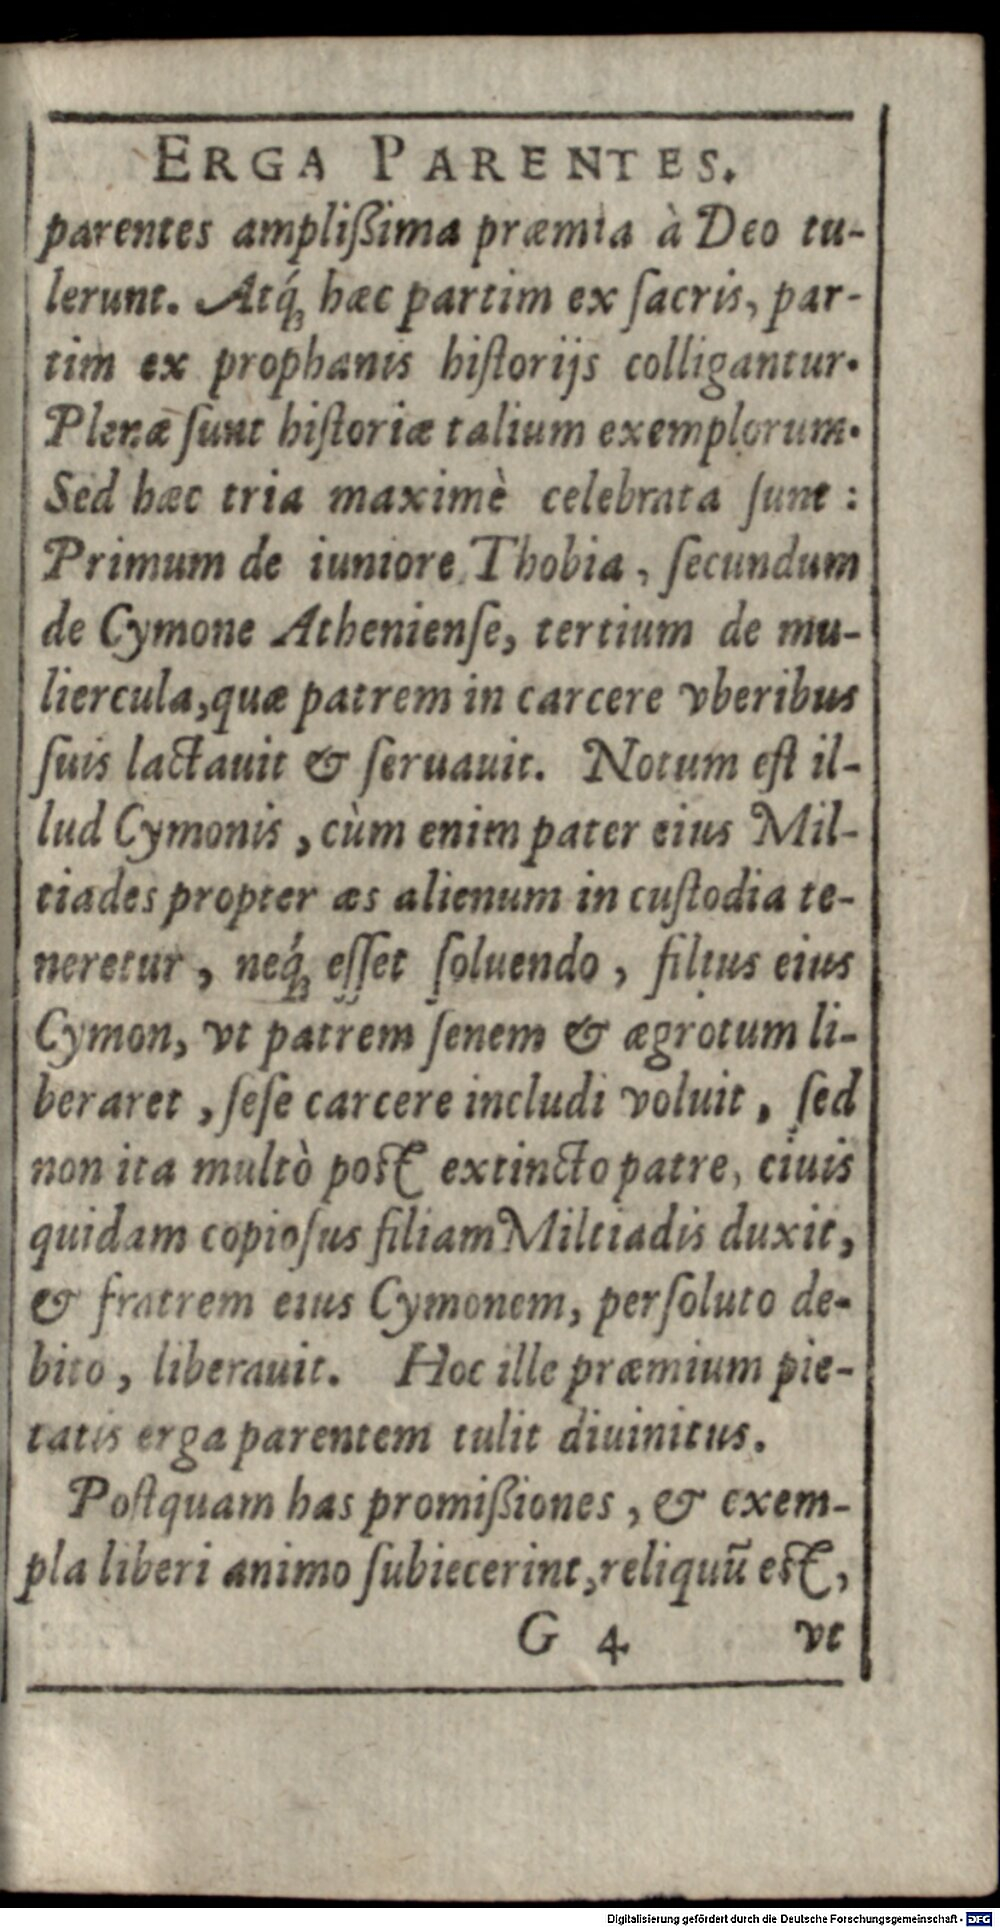 ERGA PARENTES.
parentes ampliſſima præmia à Deo tu-
lerunt. Atq́ꝫ hæc partim ex ſacris, par-
tim ex prophanis hiſtorijs colligantur.
Plenæ ſunt hiſtoriæ talium exemplorum.
Sed hæc tria maximè celebrata ſunt :
Primum de iuniore Thobia, ſecundum
de Cymone Athenienſe, tertium de mu-
liercula, quæ patrem in carcere vberibus
ſuis lactauit & ſeruauit. Notum eſt il-
lud Cymonis, cùm enim pater eius Mil-
tiades propter æs alienum in cuſtodia te-
neretur, neq́ꝫ eſſet ſoluendo, filius eius
Cymon, vt patrem ſenem & ægrotum li-
beraret, ſeſe carcere includi voluit, ſed
non ita multò poſt extincto patre, ciuis
quidam copioſus filiam Miltiadis duxit,
& fratrem eius Cymonem, perſoluto de-
bito, liberauit. Hoc ille præmium pie-
tatis erga parentem tulit diuinitus.
Poſtquam has promiſſiones, & exem-
pla liberi animo ſubiecerint, reliquū eſt,
G 4 vt
Digitalisierung gefördert durch die Deutsche Forschungsgemeinschaft - DFG